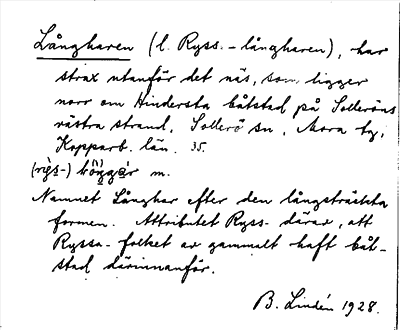 Långharen (l. Ryss.-långharen), har
strax utanför det näs, som ligger
norr om Hindersta båtstad på Solleröns
västra strand, Sollerö sn, Mora tg,
Kopparb. län. 35.
m.
Namnet Långhar efter den långsträckta
formen. Attributet Ryss- därav, att
Ryssa-folket av gammalt haft båt-
stad därinnanför.
B. Lindén 1928.